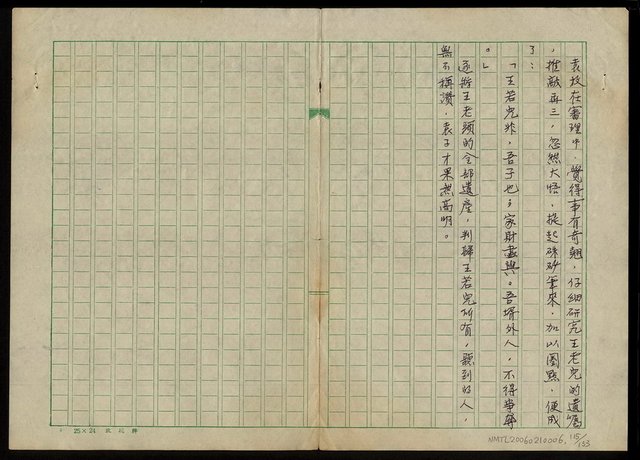 袁枚在審理中，覺得事有奇翹，仔細研究王老兒的遺囑
，推敲再三，忽然大悟，提起硃砂筆來，加以圈點，便成
了：
「王若兒非，吾子也；家財盡與。吾壻外人，不得爭奪
。」
遂將王老頭的全部遺產，判歸王若兒所有，聽到的人，
無不稱讚，袁子才果然高明。
25×24
NMTL20060210006, 115/133